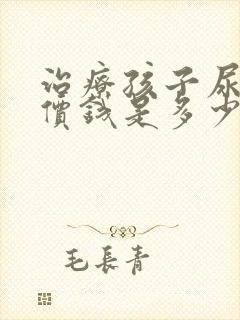 治療孩子尿
價錢是多少
毛長青